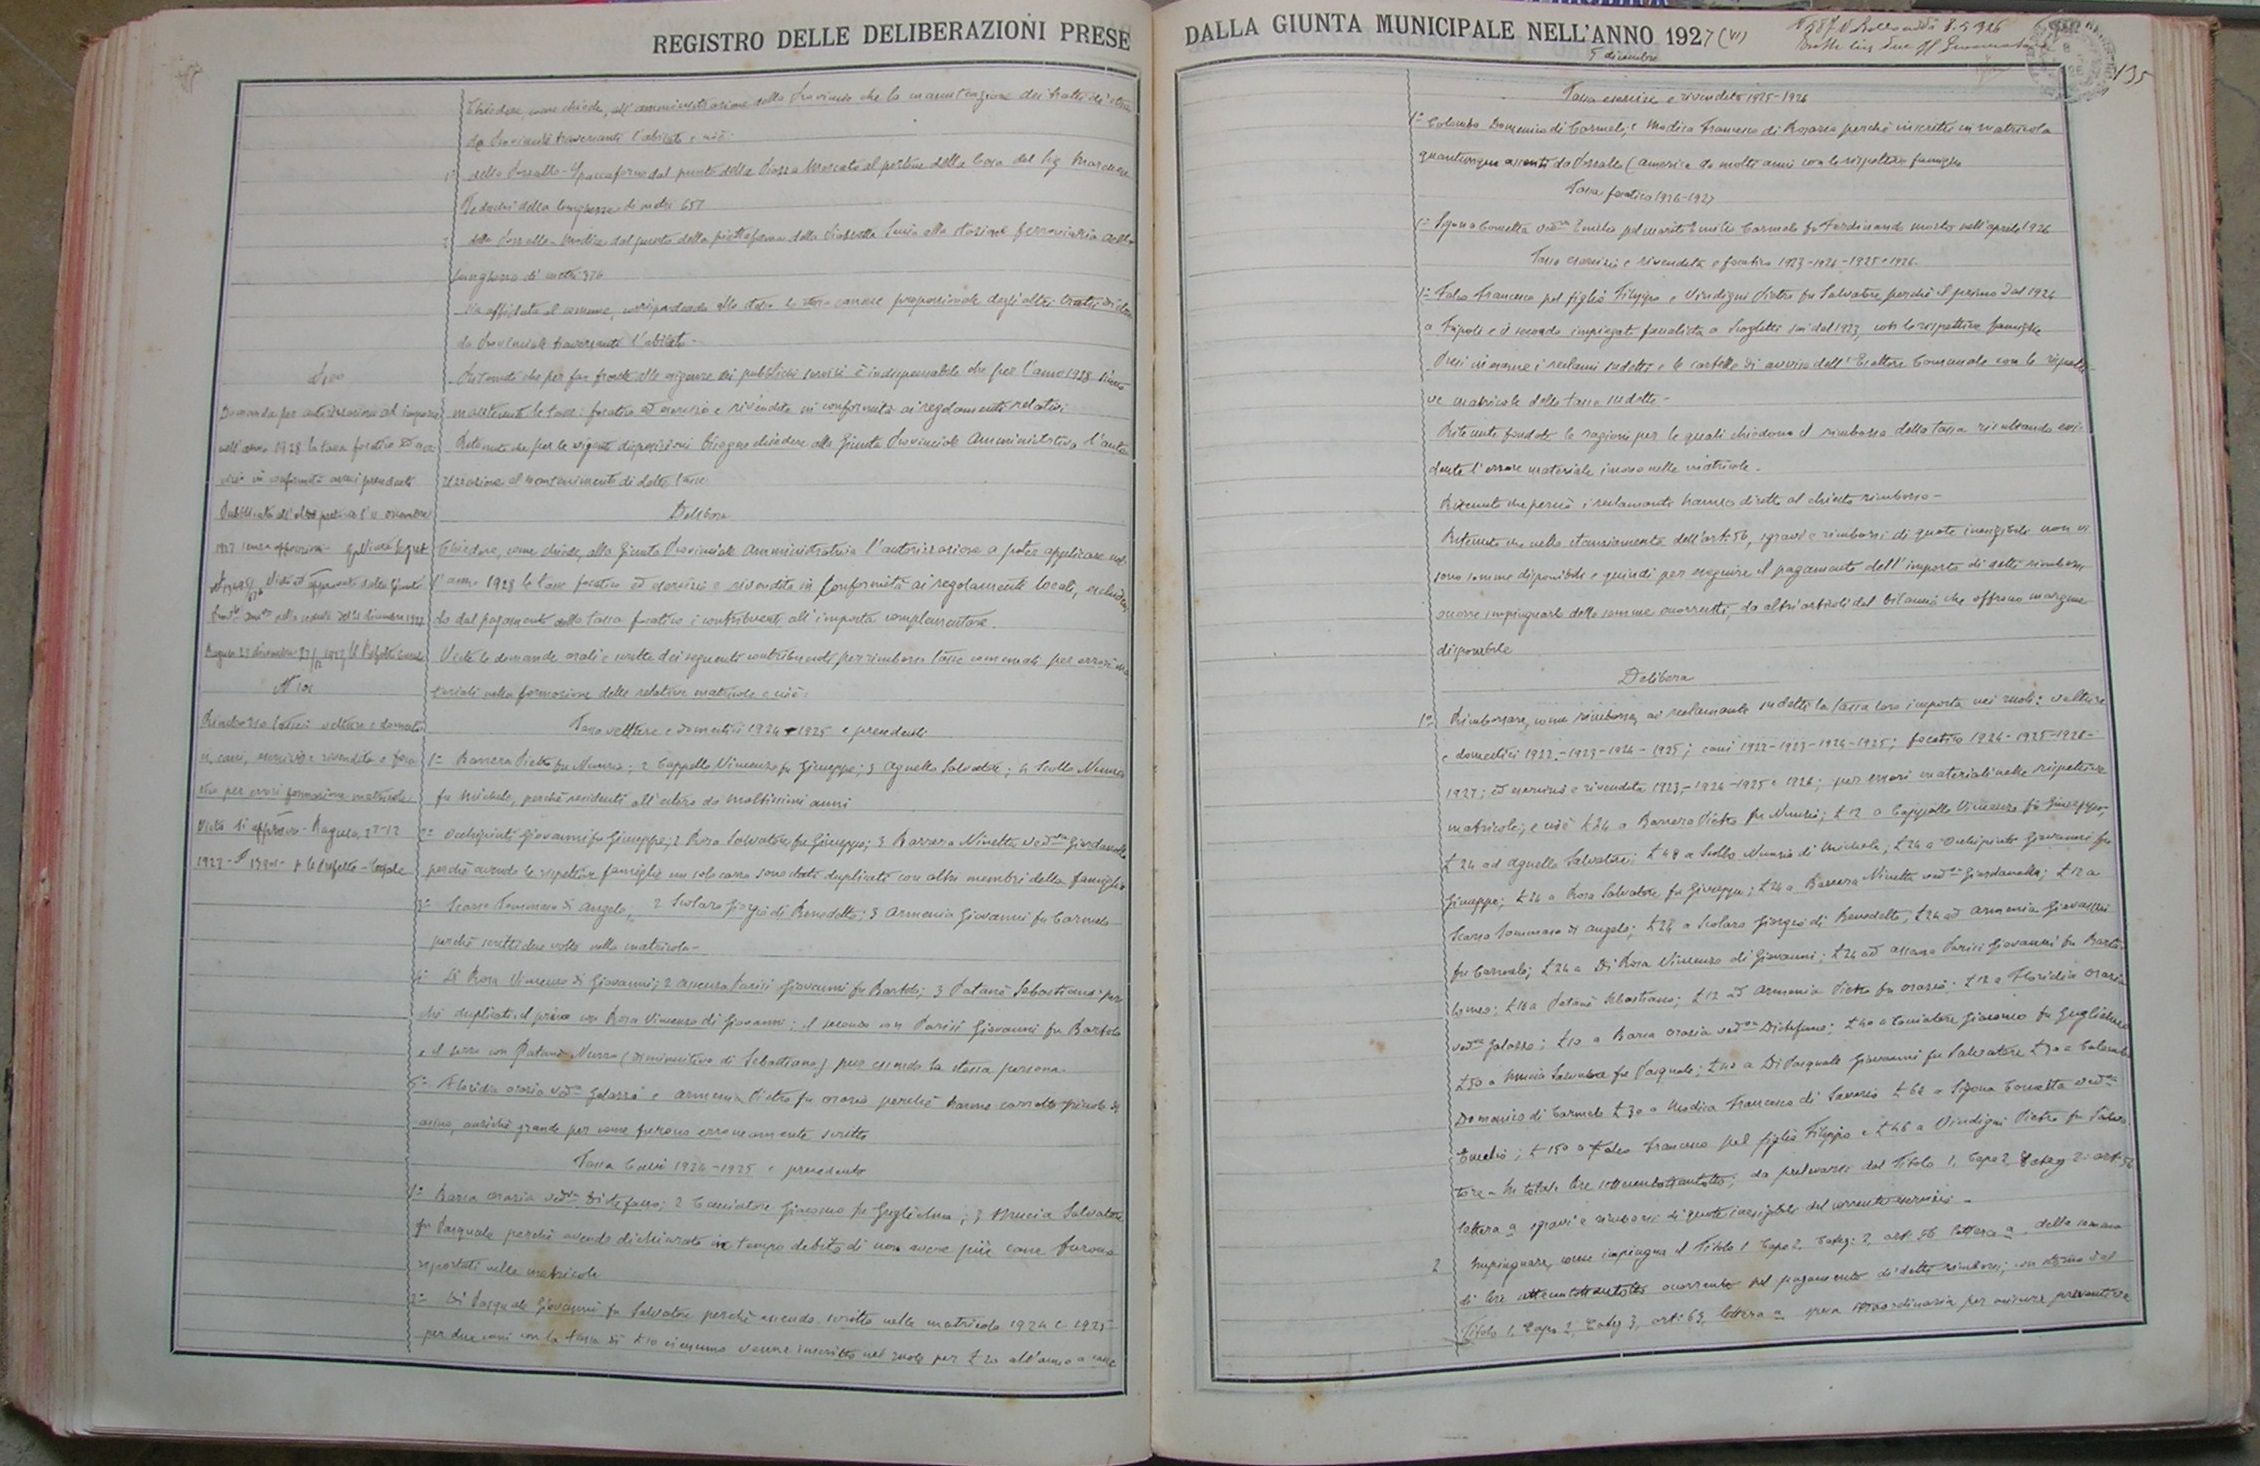 REGISTRO DELLE DELIBERAZIONI PRESE
Chiedere, come chiede, all'amministrazione della Provincia che la manutenzione dei tratti di
da Provinciale traversanti l'abitato e cioè:
1° della Pozzallo-Spaccaforno dal punto della Piazza Mercato al portone della Casa del Sig.
della lunghezza di metri 657
2 della Pozzallo-Modica dal punto della piattaforma della alla stazione ferroviaria della
lunghezza di metri 376
Sia affidata al comune, corrispondendo allo stesso lo stesso canone proporzionale degli altri tratti di
da Provinciale traversanti l'abitato.
N 100
Domanda per autorizzazione ad imporre
nell'anno 1928 la tassa focatico ed
in conformità precedenti
Pubblicata all'albo
1927 senza opposizioni
Visto ed approvato dalla Giunta
nella seduta del 21 dicembre 1927
Ragusa 27 dicembre 1927
Ritenuto che per far fronte alle esigenze dei pubblici servizi è indispensabile che per l'anno 1928 siano
mantenute le tasse: focatico ed esercizio e rivendita in conformità ai regolamenti relativi
Ritenuto che per le vigenti disposizioni bisogna chiedere alla Giunta Provinciale Amministrativa l'auto
rizzazione al mantenimento di dette tasse
Delibera
Chiedere, come chiede, alla Giunta Provinciale Amministrativa l'autorizzazione a poter applicare nel
l'anno 1928 le tasse focatico ed esercizio e rivendita in conformità ai regolamenti locali, escluden
do dal pagamento della tassa focatico i contribuenti all'imposta complementare.
N 101
Rimborso tasse: vetture e domesti
ci, cani, esercizio e rivendita e foca
tico per errori formazione matricole
Visto si approva - Ragusa 27-12
1927
Viste le domande orali e scritte dei seguenti contribuenti per rimborso tasse comunali per errori ma
teriali nella formazione delle relative matricole e cioè:
Tassa vetture e domestici 1924-1925 e precedenti
1° Barrera Pietro fu Nunzio; 2 Cappello Vincenzo fu Giuseppe; 3 Agnello Salvatore; 4 Scollo Nunzio
fu Michele, perchè residenti all'estero da moltissimi anni
2° Occhipinti Giovanni fu Giuseppe; 2 Rosa Salvatore fu Giuseppe; 3 Barrera Ninetta ved. Giordanella
perchè avendo le rispettive famiglie un solo carro sono stati duplicati con altri membri della famiglia
3° Scarso Tommaso di Angelo; 2 Scolaro Giorgio di Benedetto; 3 Armenia Giovanni fu Carmelo
perchè scritti due volte nella matricola
4° Di Rosa Vincenzo di Giovanni; 2 Parisi Giovanni fu Bartolo; 3 Patanè Sebastiano per
chè duplicati il primo con Rosa Vincenzo di Giovanni; il secondo con Parisi Giovanni fu Bartolo
e il terzo con Patanè (diminutivo di Sebastiano) pur essendo la stessa persona.
5° Floridia Orazia ved. Galazzo e Armenia Pietro fu Orazio perchè hanno carretto piccolo di
asino, anzichè grande per come furono erroneamente scritti
Tassa Cani 1924-1925 e precedente
1° Barca Orazia ved. Di Stefano; 2 Cacciatore Giacomo fu Guglielmo; 3 Muccia Salvatore
fu Pasquale perchè avendo dichiarato in tempo debito di non avere più cane furono
riportati nelle matricole
2° Di Pasquale Giovanni fu Salvatore perchè essendo scritto nelle matricole 1924 e 1925
per due cani con la tassa di £ 10 ciascuno venne inscritto nel ruolo per £ 20 all'anno a cane
DALLA GIUNTA MUNICIPALE NELL'ANNO 1927 (VI)
5 dicembre
135
Tassa esercizi e rivendita 1925-1926
1° Colombo Domenico di Carmelo, e Modica Francesco di Rosario perchè inscritti in matricola
quantunque assenti da Pozzallo (America) da molti anni con le rispettive famiglie
Tassa focatico 1926-1927
1° Sigona Concetta ved. Emilio pel marito Emilio Carmelo fu Ferdinando morto nell'aprile 1926
Tassa esercizio e rivendita e focatico 1923-1924-1925 e 1926
1° Falco Francesco pel figlio Filippo e Vindigni Pietro fu Salvatore perchè il primo dal 1924
a Tripoli e il secondo impiegato fanalista a Scoglitti sin dal 1923, con le rispettive famiglie
Presi in esame i reclami sudetti e le cartelle di avviso dell'Esattore Comunale con le rispetti
ve matricole delle tasse sudette -
Ritenute fondate le ragioni per le quali chiedono il rimborso della tassa risultando evi
dente l'errore materiale incorso nelle matricole -
Ritenuto che perciò i reclamanti hanno diritto al chiesto rimborso -
Ritenuto che nello stanziamento dell'art. 56, sgravi e rimborsi di quote inesigibili non vi
sono somme disponibili e quindi per eseguire il pagamento dell'importo di detti rimborsi
occorre impinguarlo delle somme occorrenti, da altri articoli del bilancio che offrono margine
disponibile
Delibera
1° Rimborsare, come rimborsa, ai reclamanti sudetti la tassa loro imposta nei ruoli: vetture
e domestici 1922-1923-1924-1925; cani 1922-1923-1924-1925; focatico 1924-1925-1926-
1927; ed esercizio e rivendita 1923-1924-1925 e 1926; per errori materiali nelle rispettive
matricole; e cioè £ 24 a Barrera Pietro fu Nunzio; £ 12 a Cappello Vincenzo fu Giuseppe;
£ 24 ad Agnello Salvatore; £ 48 a Scollo Nunzio di Michele; £ 24 a Occhipinti Giovanni fu
Giuseppe; £ 24 a Rosa Salvatore fu Giuseppe; £ 24 a Barrera Ninetta ved. Giordanella; £ 12 a
Scarso Tommaso di Angelo; £ 24 a Scolaro Giorgio di Benedetto; £ 24 ad Armenia Giovanni
fu Carmelo; £ 24 a Di Rosa Vincenzo di Giovanni; £ 24 ad Parisi Giovanni fu Barto
lomeo; a Patanè Sebastiano; £ 12 ad Armenia Pietro fu Orazio; £ 12 a Floridia Orazia
ved. Galazzo; £ 10 a Barca Orazia ved. Di Stefano; £ 40 a Cacciatore Giacomo fu Guglielmo
£ 50 a Muccia Salvatore fu Pasquale; £ 40 a Di Pasquale Giovanni fu Salvatore £ 30 a Colombo
Domenico di Carmelo £ 30 a Modica Francesco di £ 64 a Sigona Concetta ved.
Emilio; £ 150 a Falco Francesco pel figlio Filippo e £ 46 a Vindigni Pietro fu Salva
tore - In totale lire da prelevarsi dal Titolo 1, Capo 2, Categ 2: art. 56
lettera a sgravi e rimborsi di quote inesigibili del corrente esercizio -
2 Impinguare, come impingua il Titolo 1 Capo 2, Categ: 2, art. 56 lettera a, della somma
di lire occorrente pel pagamento di detti rimborsi; con storno dal
Titolo 1, Capo 2, Categ 3, art. 63, lettera a spesa straordinaria per misure preventive